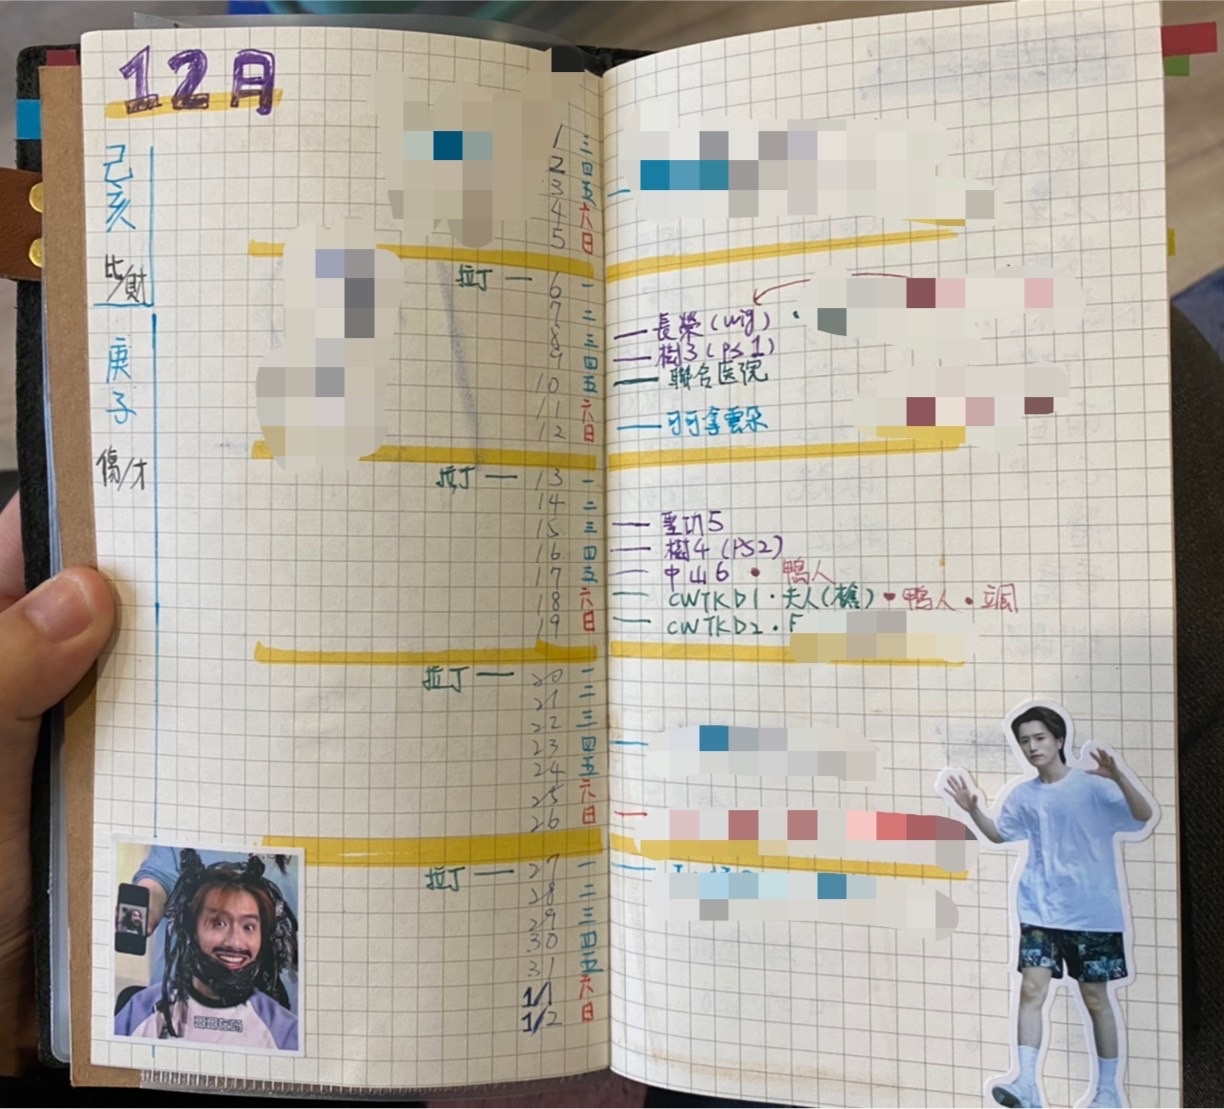 12月
己亥
比/財
庚子
傷/才
1 三
2 四
3 五
4 六
5 日
拉丁 — 6 一
7 二
8 三 — 長榮(wig)
9 四 — 樹3(PS1)
10 五 — 聯合医院
11 六
12 日 — 可可拿雲朵
拉丁 — 13 一
14 二
15 三 — 聖功5
16 四 — 樹4(PS2)
17 五 — 中山6 • 鴨人
18 六 — CWTKD1 • 夫人 • 鴨人 • 立風
19 日 — CWTKD2 • F
拉丁 — 20 一
21 二
22 三
23 四
24 五
25 六
26 日
拉丁 — 27 一
28 二
29 三
30 四
31 五
1/1 六
1/2 日